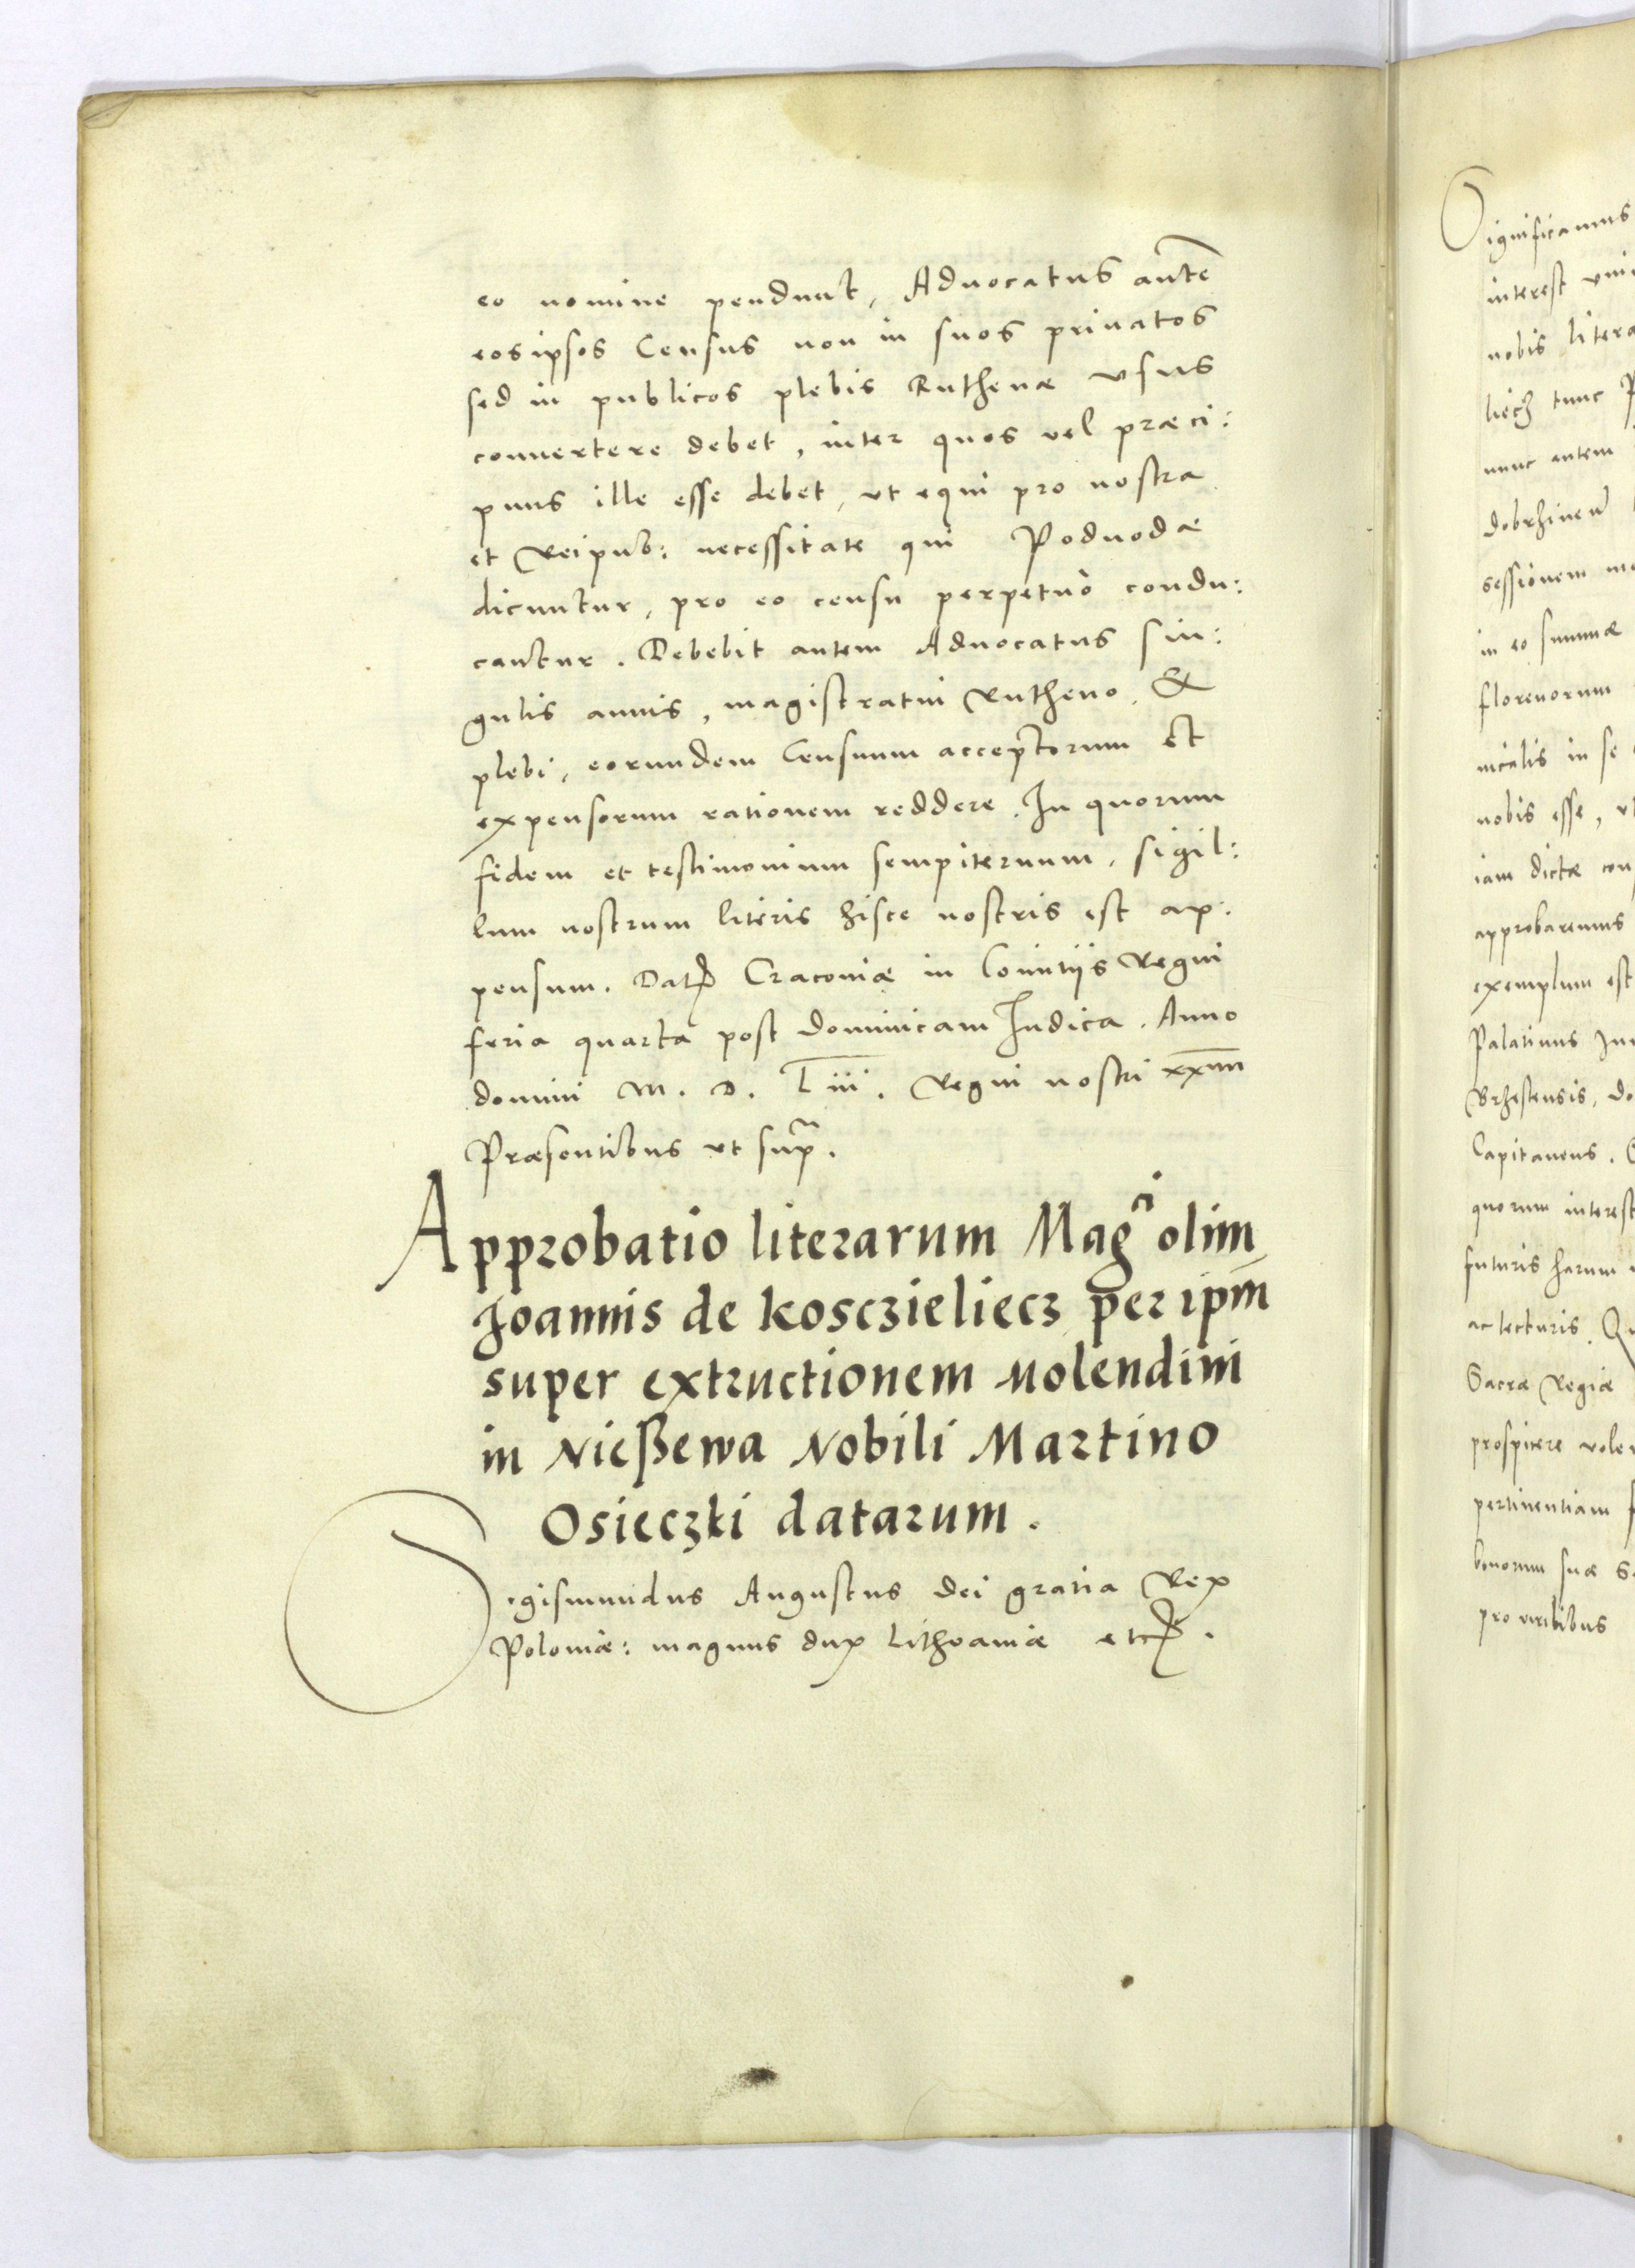 eo nomine pendunt, Aduocatus aut̄e
eos ipsos Census non in suos priuatos
sed in publicos plebis Ruthenæ vsus
conuertere debet, inter quos vel præci:
puus ille esse debet, vt equi pro nostra
et Reipub: necessitate qui Poduodæ
dicuntur, pro eo censu perpetuò condu:
cantur. Debebit autem Aduocatus sin:
gulis annis, magistratui Rutheno, &
plebi, eorundem Censuum acceptorum et
expensorum rationem reddere. In quorum
fidem et testimonium sempiternum, sigil:
lum nostrum literis hisce nostris est ap:
pensum. Dat Cracouiæ in Comitijs Regni
feria quarta post dominicam Iudica. Anno
domini M. D. Liii. Regni nostri xxiiii
Præsentibus vt sup̃.
Approbatio literarum Mag^ci olim
Joannis de kosczieliecz per ip̄m
super extructionem Molendini
in Nießewa Nobili Martino
Osieczki datarum.
Sigismundus Augustus dei gratia Rex
Poloniæ: magnus dux Lithoaniæ etc.
Significamus
interest
nobis litera
liecz tunc P
nunc autem
dobrzinen̄
sessionem
in eo summæ
florenorum
nicalis in se
nobis esse, vt
iam dictæ con
approbaremus
exemplum est
Palatinus Jun
Brzestensis, do
Capitaneus.
quorum interest
futuris harum
ac lecturis. Qu
Sacræ Regiæ
prospicere vole
pertinentiam
bonorum suæ Sa
pro viribibus